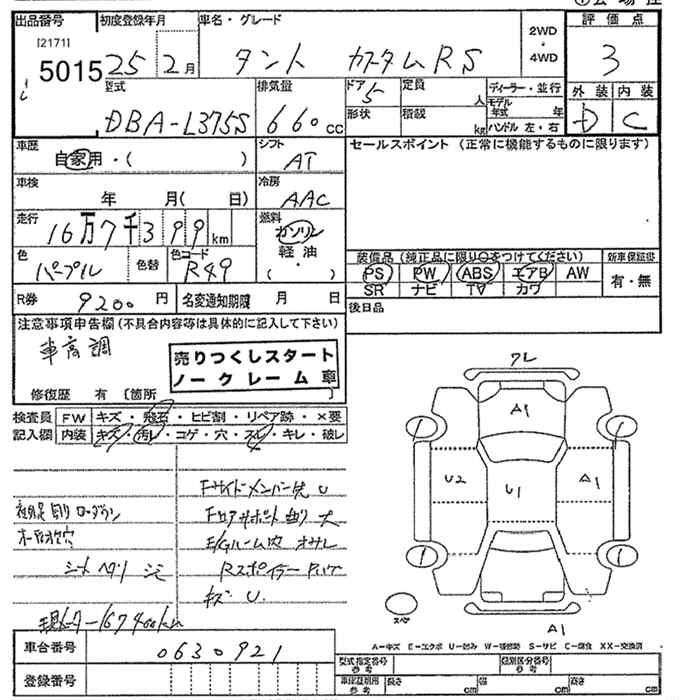 出品番号 初度登録年月 車名・グレード 評価点
[2171]
5015 25年 2月 タント カスタムRS 2WD・4WD 3
型式 排気量 ドア 定員 ディーラー・並行 外装 内装
DBA-L375S 660cc 5 人 モデル年式 年 D C
形状 積載 kg ハンドル 左・右
車歴 自家用・( ) シフト AT セールスポイント (正常に機能するものに限ります)
車検 年 月( 日) 冷房 AAC
走行 16万7千399km 燃料 ガソリン 軽油 ( ・ )
色 パープル 色替 色コード R49 装備品 (純正品に限り○をつけてください) 新車保証書
PS PW ABS エアB AW 有・無
SR ナビ TV カワ
R券 9200円 名変通知期限 月 日 後日品
注意事項申告欄(不具合内容等は具体的に記入して下さい)
車高調
売りつくしスタート
ノークレーム車
修復歴 有 〔箇所 〕
検査員 FW キズ・飛石・ヒビ割・リペア跡・×要
記入欄 内装 キズ・汚レ・コゲ・穴・スレ・キレ・破レ
クレ
A1
U2 U1 A1
Fサイドメンバー先 U
E/Gルーム内
キズ U
スペア
A1
A―キズ E―エクボ U―凹み W―補修跡 S―サビ C―腐食 XX―交換済
車台番号 0630921
型式指定番号 参考 類別区分番号 参考
登録番号
車検証記載 参考 長さ cm 幅 cm 高さ cm